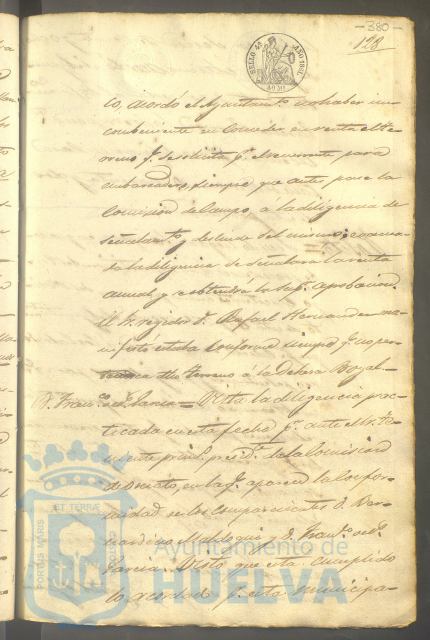 -380-
128
SELLO 4º AÑO 1861.
40 MS
co, acordó el Ayuntamto no haber in
combeniente en conceder en renta el te
rreno q. se solicita pr el recurrente para
embarcadero, siempre que ante pase la
Comision de Campo, á la diligencia de
señalamto y deslinde del mismo; evacua
da la diligencia se señalará la renta
anual y se obtendrá la supr aprobacion.
El Sr regidor D. Rafael Hernandez ma
nifestó estaba conforme siempre q. no per
dho terreno á la Dehesa Boyal-
D. Franco de Pla Garcia = Vista la diligencia prac
ticada en esta fecha pr ante el Sr Te
niente primo presidte de la Comision
de Ornato, en la q. aparece la confor
midad de los comparecientes D. Ber
nardino y D. Franco de Pla
Garcia. Visto que esta cumplido
lo acordado pr esta municipa-
PORTUS MARIS ET TERRAE
Ayuntamiento de
HUELVA